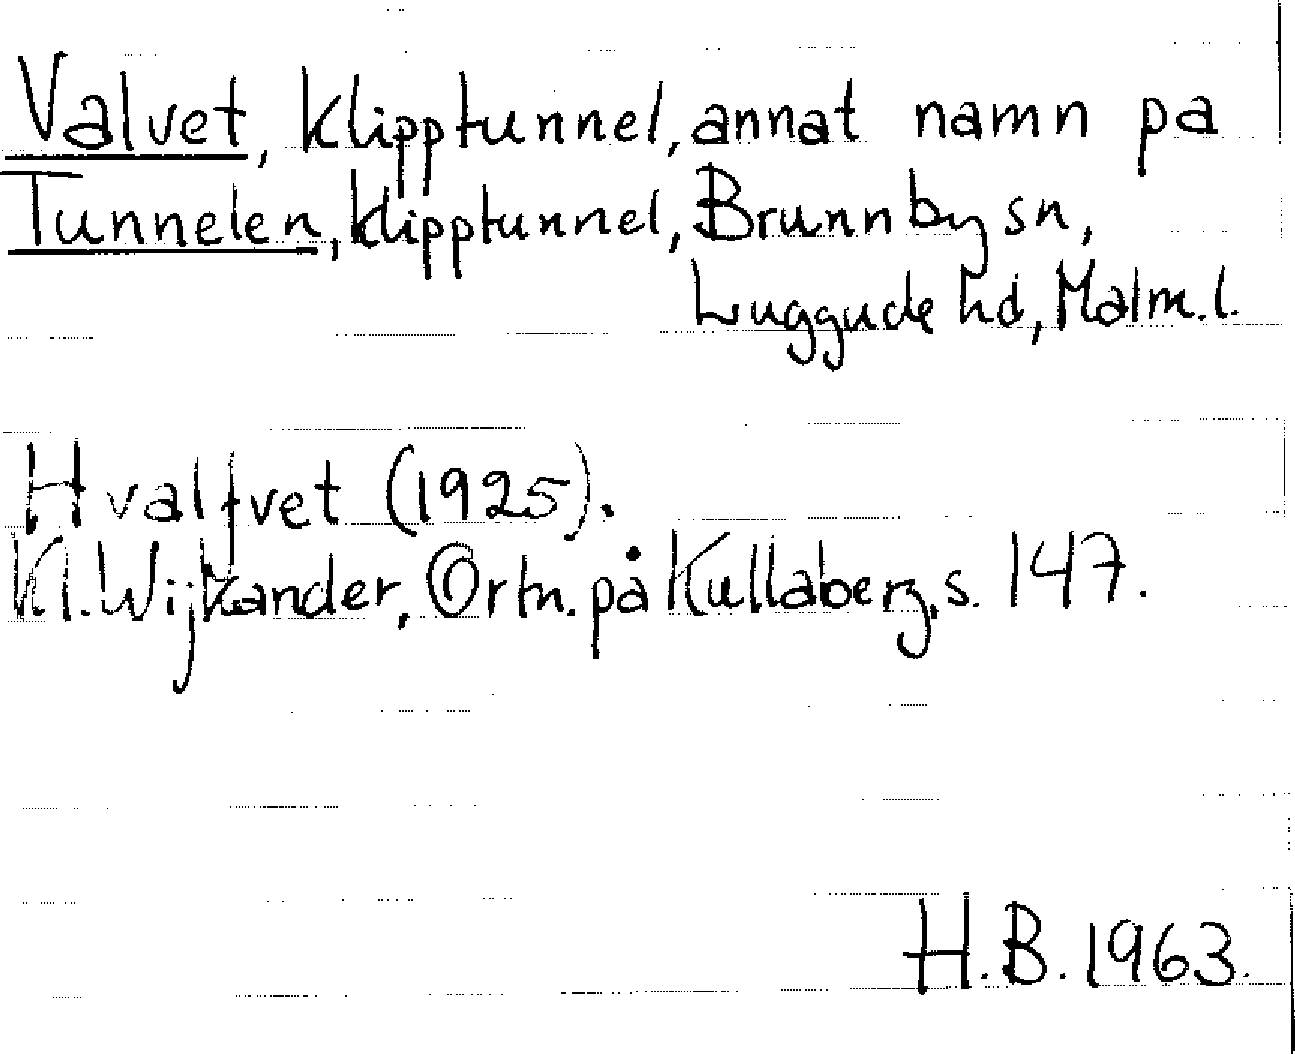 Valvet, klipptunnel, annat namn pa
Tunnelen, klipptunnel, Brunnby sn,
Luggude hd, Malm.l.
Hvalfvet (1925).
Kl. Wijkander, Ortn. på Kullaberg, s. 147.
H.B. 1963.